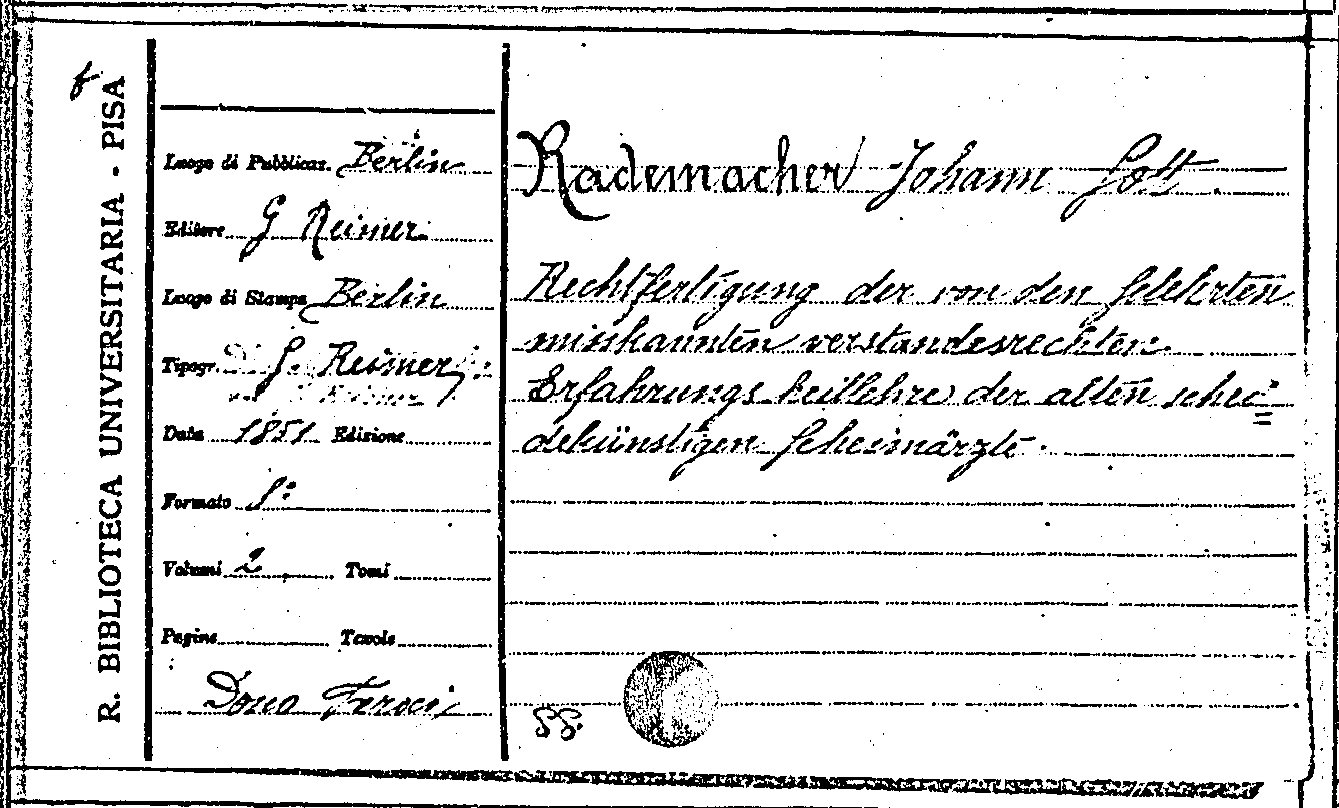 f
R. BIBLIOTECA UNIVERSITARIA - PISA
Luogo di Pubblicaz. Berlin
Editore G Reimer
Luogo di Stampa Berlin
Tipogr. G. Reimer
Data 1851 Edizione
Formato 8º
Volumi 2 Tomi
Pagine Tavole
Dono Feroci
Rademacher Johann Gott.
Rechtfertigung der von den Gelehrten
misskannten verstandesrechten
Erfahrungsheillehre der alten schei=
dekünstigen Geheimärzte.
SS.